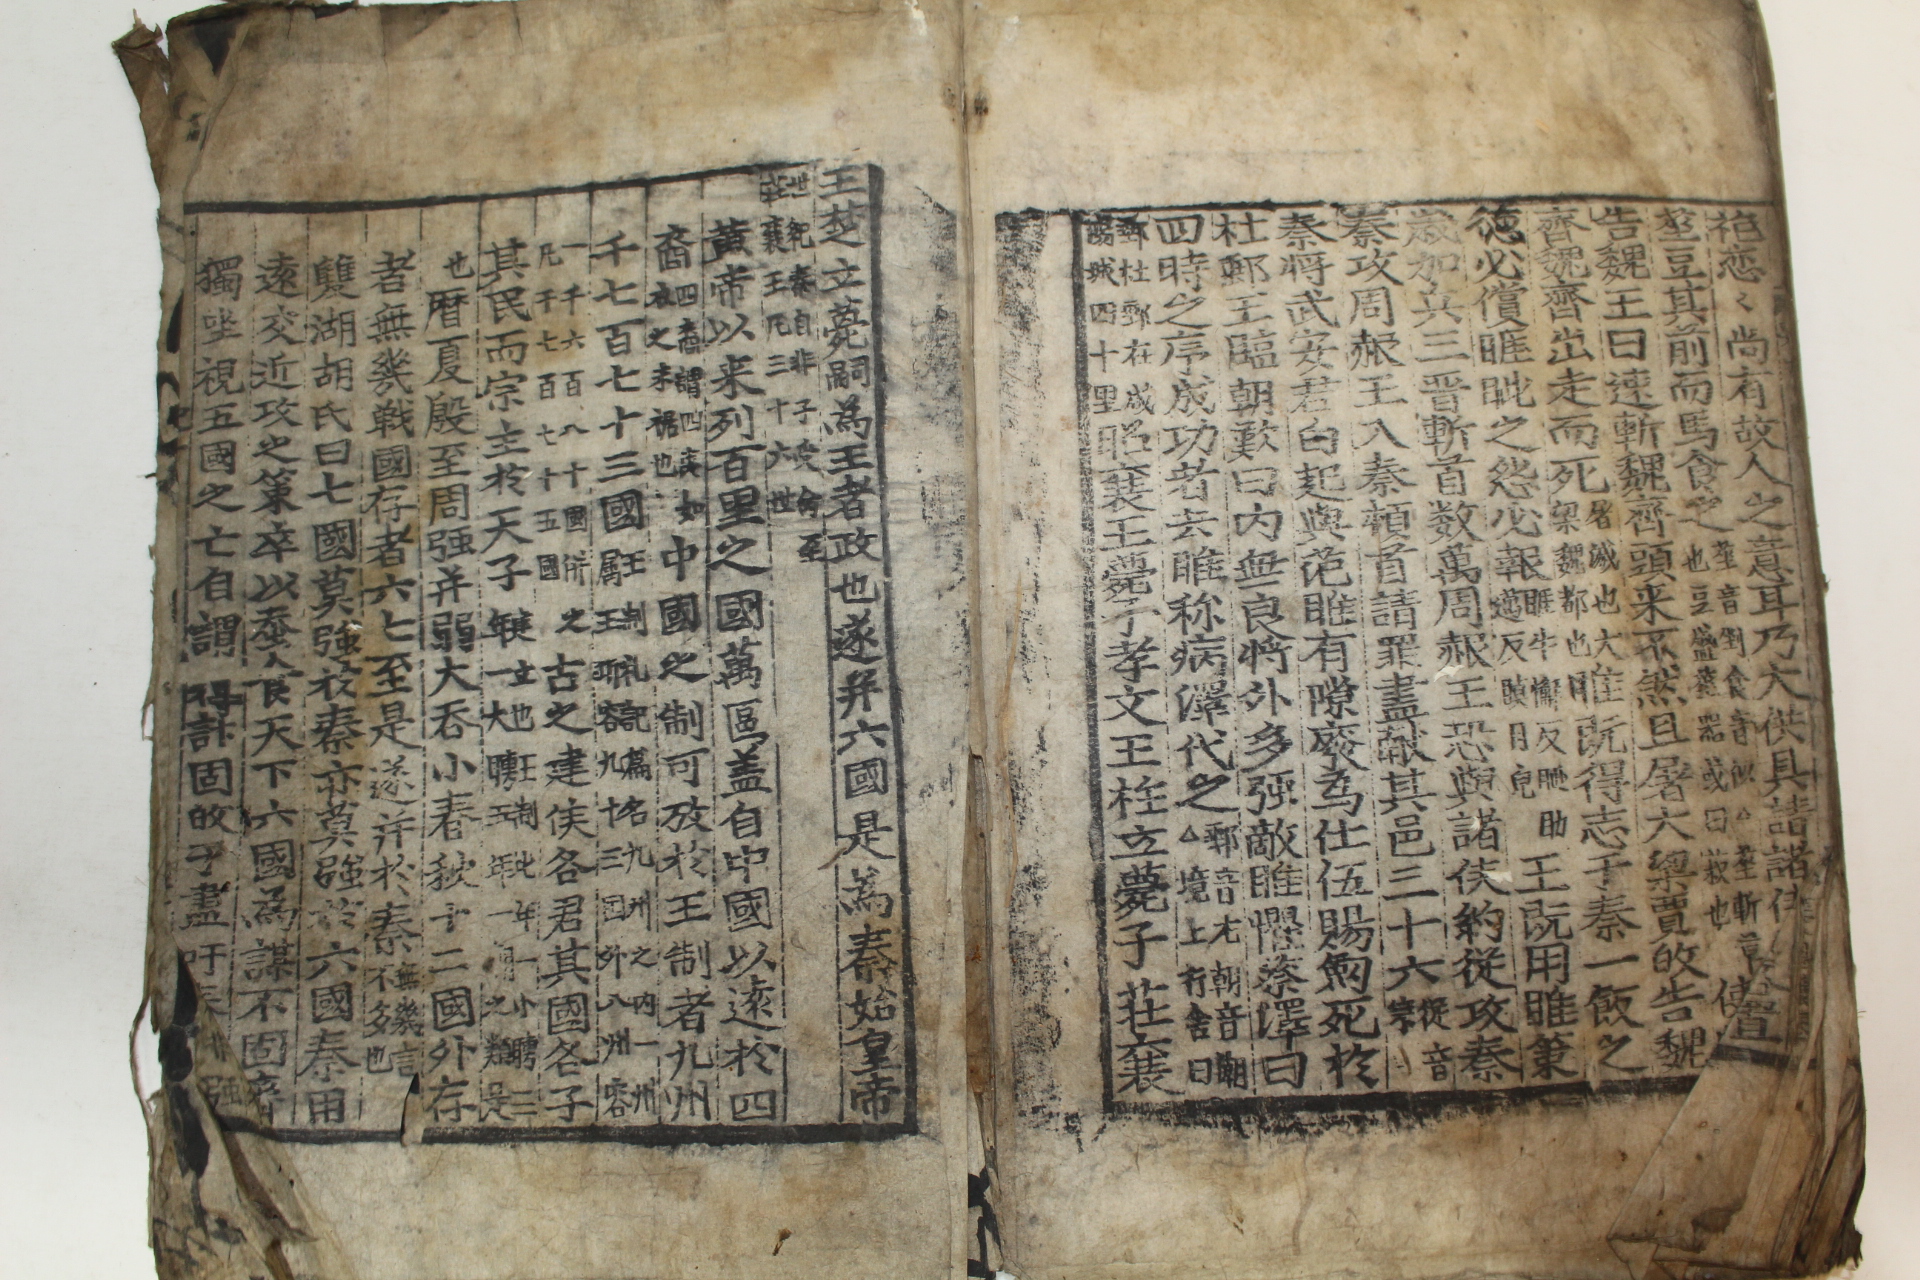 袍恋〻尚有故人之意耳乃大供具諸諸侯
莝豆其前而馬食之
告魏王曰速斬魏齊頭来不然且屠大梁賈敀告魏
齊魏齊出走而死屠滅也大梁魏都也睢既得志于秦一飯之
德必償睚眦之怨必報王既用睢策
歲加兵三晋斬首数萬周赧王恐與諸侯約從攻秦
秦攻周赧王入秦頓首請罪盡献其邑三十六從音宗
秦将武安君白起與范睢有隙廢為仕伍賜劒死於
杜郵王臨朝歎曰内無良將外多强敵睢懼蔡澤曰
四時之序成功者去睢称病澤代之郵音尤朝音潮△境上行舍曰
郵杜郵在咸陽城四十里昭襄王薨子孝文王柱立薨子莊襄
王楚立薨嗣為王者政也遂并六國是為秦始皇帝
世紀秦自非子受倉至莊襄王凡三十六世
黄帝以来列百里之國萬區盖自中國以遠於四
裔四裔謂四夷如衣之末裾也中國之制可攷於王制者九州
千七百七十三國王制礼記篇名九州之内一州容九十三国外八州
一千六百八十國併之凡千七百七十五國古之建侯各君其國各子
其民而宗主於天子
也曆夏殷至周强并弱大吞小春秋十二國外存
者無幾戰國存者六七至是遂并於秦無幾言不多也
雙湖胡氏曰七國莫強於秦亦莫強於六國秦用
遠交近攻之策卒以蚕食天下六國為謀不固齊
獨坐視五國之亡自謂得計固敀于盡吁